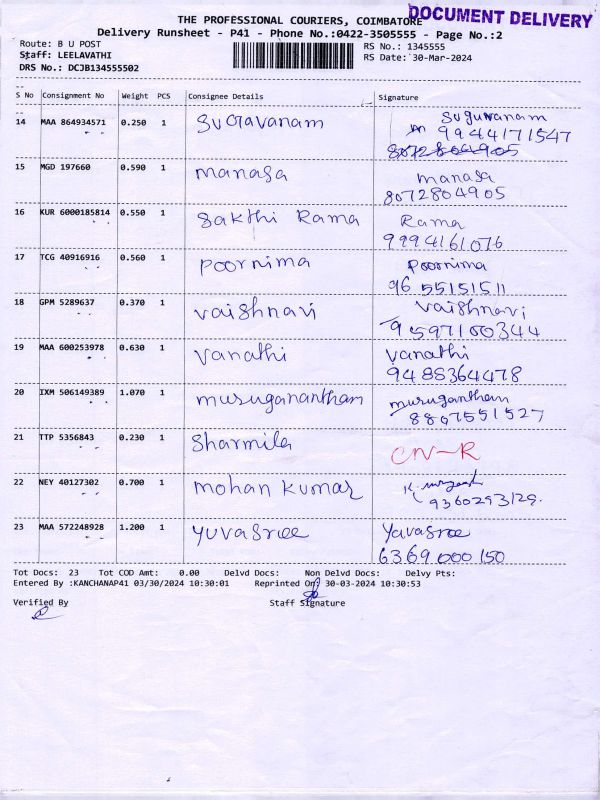 DOCUMENT DELIVERY
THE PROFESSIONAL COURIERS, COIMBATORE
Delivery Runsheet - P41 - Phone No.:0422-3505555 - Page No.:2
Route: B U POST RS No.: 1345555
Staff: LEELAVATHI RS Date: 30-Mar-2024
DRS No.: DCJB134555502
S No Consignment No Weight PCS Consignee Details Signature
14 MAA 864934571 0.250 1 Sugavanam Suguvanam
9944171547
8072804905
15 MGD 197660 0.590 1 manasa manasa
8072804905
16 KUR 6000185814 0.550 1 Sakthi Rama Rama
9994161076
17 TCG 40916916 0.560 1 Poornima Poornima
96 55151511
18 GPM 5289637 0.370 1 vaishnavi vaishnavi
9597100344
19 MAA 600253978 0.630 1 vanathi vanathi
9488364478
20 IXM 506149389 1.070 1 muruganantham murugantham
8807551527
21 TTP 5356843 0.230 1 Sharmila CN-R
22 NEY 40127302 0.700 1 mohan kumar K.
9360293129.
23 MAA 572248928 1.200 1 yuvasree Yuvasree
6369 000 150
Tot Docs: 23 Tot COD Amt: 0.00 Delvd Docs: Non Delvd Docs: Delvy Pts:
Entered By :KANCHANAP41 03/30/2024 10:30:01 Reprinted On: 30-03-2024 10:30:53
Verified By Staff Signature